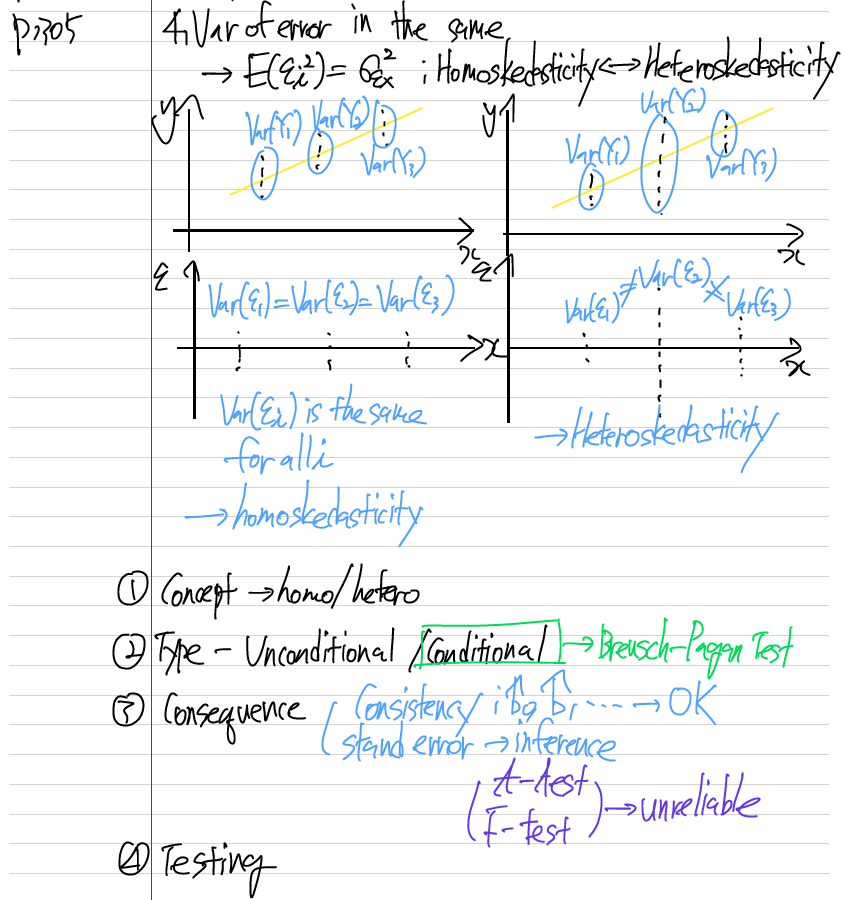 p.305
4. Var of error in the same
→ E(εi²) = σεx² ; Homoskedasticity ↔ Heteroskedasticity
y Var(Y1) Var(Y2) Var(Y3) x
y Var(Y1) Var(Y2) Var(Y3) x
ε Var(ε1) = Var(ε2) = Var(ε3) x
ε Var(ε1) ≠ Var(ε2) ≠ Var(ε3) x
Var(εi) is the same
for all i
→ homoskedasticity
→ Heteroskedasticity
① Concept → homo/hetero
② Type - Unconditional / Conditional → Breusch-Pagan Test
③ Consequence ( Consistency ; b̂0, b̂1 ... → OK
stand error → inference
( t-test
F-test ) → unreliable
④ Testing